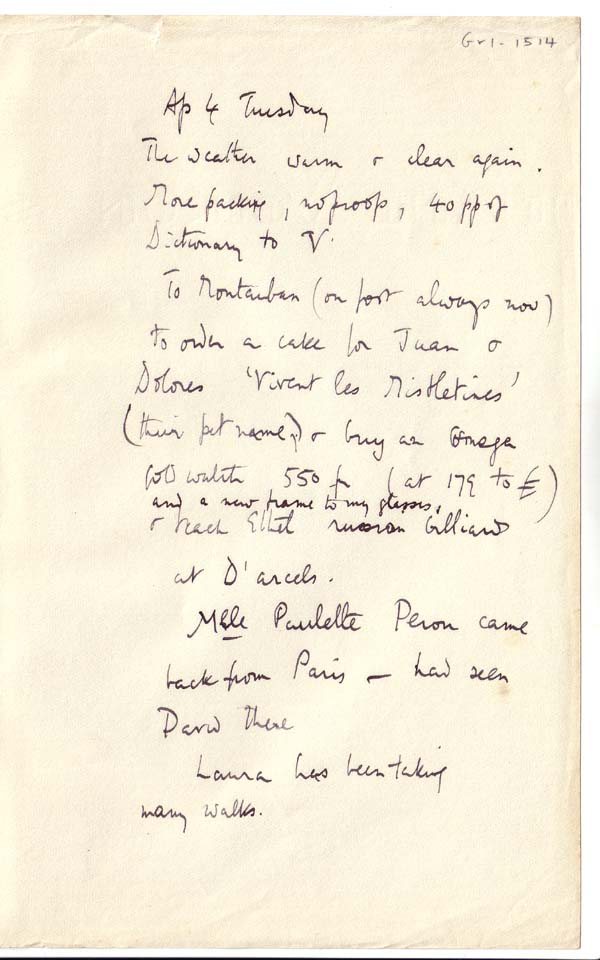 Gr1-1514
Ap 4 Tuesday
The weather warm & clear again.
More packing, no proofs, 40 pp of
Dictionary to V.
To Montauban (on foot always now)
to order a cake for Juan &
Dolores 'Vivent les Mistletines'
(their pet name) & buy an Omega
gold watch 550 fr (at 179 to £)
and a new frame to my glasses,
& teach Ethel russian billiards
at D'arcels.
Mlle Paulette Peron came
back from Paris — had seen
David there
Laura has been taking
many walks.